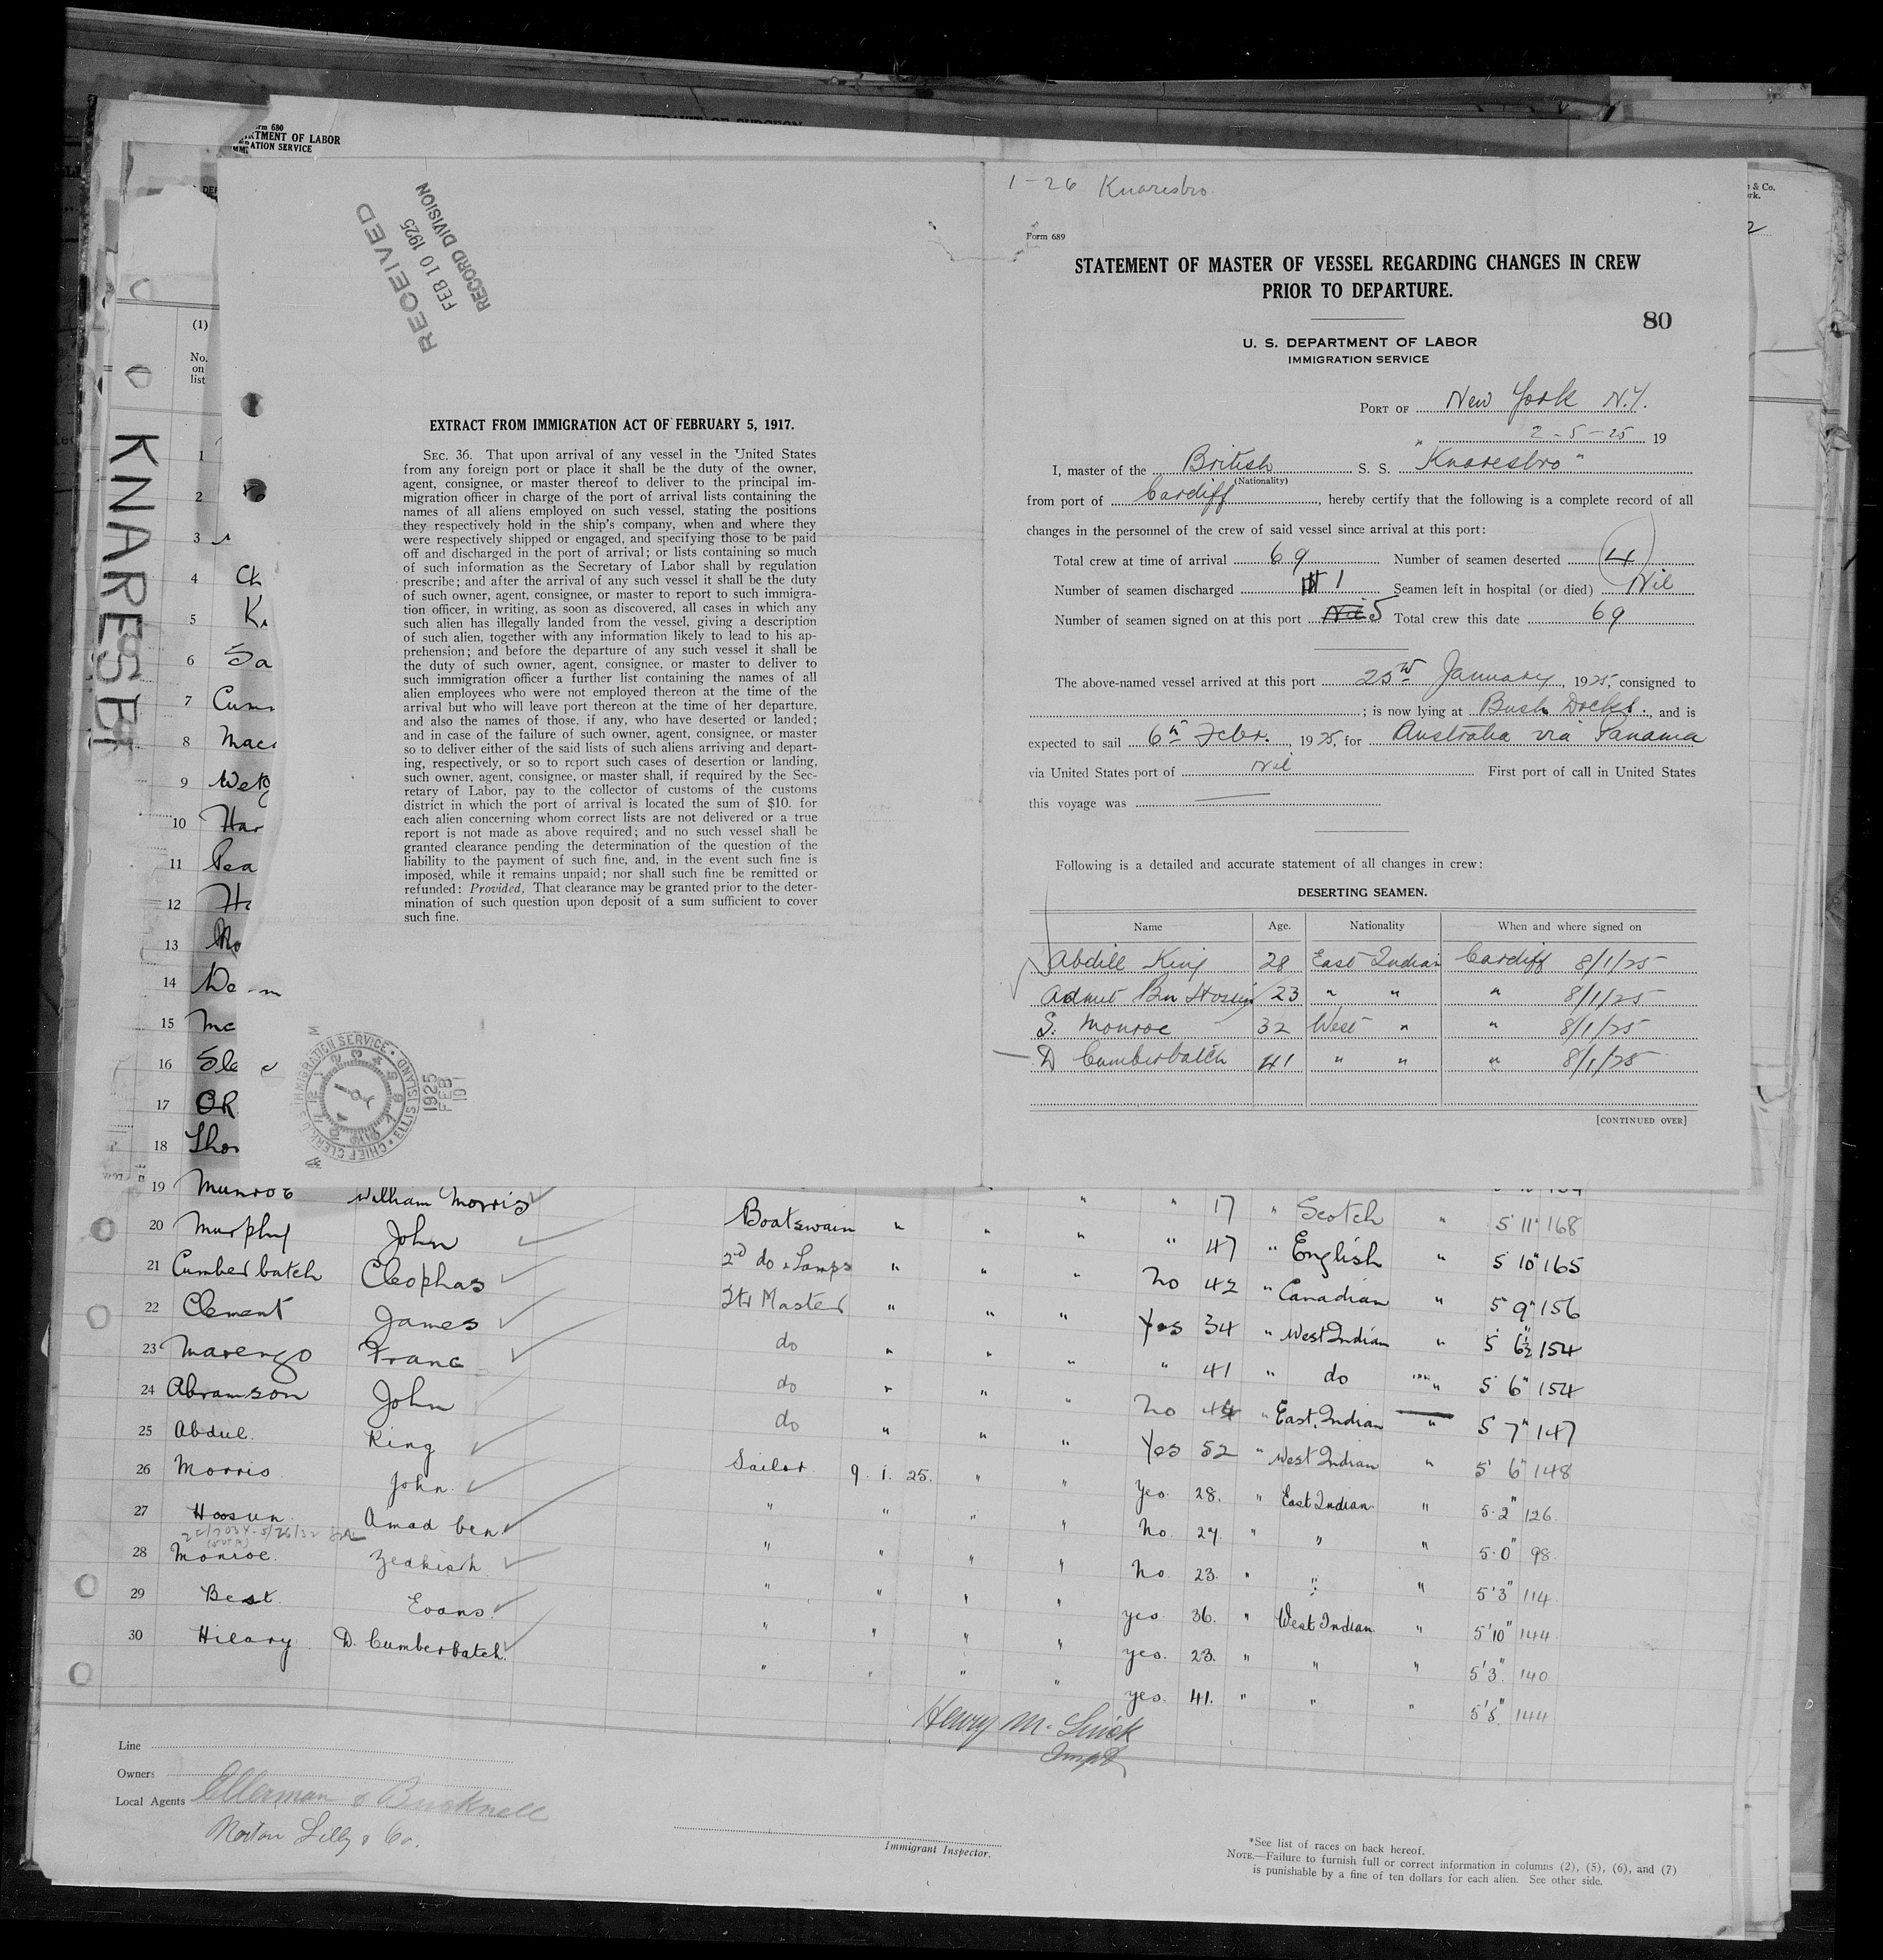 Form 680
DEPARTMENT OF LABOR
IMMIGRATION SERVICE
KNARESBRO
RECEIVED
FEB 10 1925
RECORD DIVISION
EXTRACT FROM IMMIGRATION ACT OF FEBRUARY 5, 1917.
SEC. 36. That upon arrival of any vessel in the United States
from any foreign port or place it shall be the duty of the owner,
agent, consignee, or master thereof to deliver to the principal im-
migration officer in charge of the port of arrival lists containing the
names of all aliens employed on such vessel, stating the positions
they respectively hold in the ship's company, when and where they
were respectively shipped or engaged, and specifying those to be paid
off and discharged in the port of arrival; or lists containing so much
of such information as the Secretary of Labor shall by regulation
prescribe; and after the arrival of any such vessel it shall be the duty
of such owner, agent, consignee, or master to report to such immigra-
tion officer, in writing, as soon as discovered, all cases in which any
such alien has illegally landed from the vessel, giving a description
of such alien, together with any information likely to lead to his ap-
prehension; and before the departure of any such vessel it shall be
the duty of such owner, agent, consignee, or master to deliver to
such immigration officer a further list containing the names of all
alien employees who were not employed thereon at the time of the
arrival but who will leave port thereon at the time of her departure,
and also the names of those, if any, who have deserted or landed;
and in case of the failure of such owner, agent, consignee, or master
so to deliver either of the said lists of such aliens arriving and depart-
ing, respectively, or so to report such cases of desertion or landing,
such owner, agent, consignee, or master shall, if required by the Sec-
retary of Labor, pay to the collector of customs of the customs
district in which the port of arrival is located the sum of $10. for
each alien concerning whom correct lists are not delivered or a true
report is not made as above required; and no such vessel shall be
granted clearance pending the determination of the question of the
liability to the payment of such fine, and, in the event such fine is
imposed, while it remains unpaid; nor shall such fine be remitted or
refunded: Provided, That clearance may be granted prior to the deter-
mination of such question upon deposit of a sum sufficient to cover
such fine.
1925
FEB
1-26 Knaresbro
Form 689
STATEMENT OF MASTER OF VESSEL REGARDING CHANGES IN CREW
PRIOR TO DEPARTURE.
80
U. S. DEPARTMENT OF LABOR
IMMIGRATION SERVICE
PORT OF New York N.Y.
2-5-25 19
I, master of the British S. S. "Knaresbro"
(Nationality)
from port of Cardiff, hereby certify that the following is a complete record of all
changes in the personnel of the crew of said vessel since arrival at this port:
Total crew at time of arrival 69 Number of seamen deserted 4
Number of seamen discharged 1 Seamen left in hospital (or died) Nil
Number of seamen signed on at this port 5 Total crew this date 69
The above-named vessel arrived at this port 25th January, 1925, consigned to
; is now lying at Bush Docks, and is
expected to sail 6th Febr., 1925, for Australia via Panama
via United States port of Nil First port of call in United States
this voyage was
Following is a detailed and accurate statement of all changes in crew:
DESERTING SEAMEN.
Name Age. Nationality When and where signed on
Abdill King 28 East Indian Cardiff 8/1/25
Admut Ben Hosein 23 " " " 8/1/25
S. Monroe 32 West " " 8/1/25
D Cumberbatch 41 " " " 8/1/25
[CONTINUED OVER]
(1)
No.
on
list
1
2
3
4
5
6 Sa
7 Cum
8 Mac
9
10 Har
11 Pea
12
13
14
15 Mc
16
17
18 Thor
19 Munroe William Morris " " 17 " Scotch " 5 11" 168
20 Murphy John Boatswain " " " " 47 " English " 5 10" 165
21 Cumberbatch Cleophas 2nd do & Lamps " " " No 42 " Canadian " 5 9" 156
22 Clement James Str Master " " " Yes 34 " West Indian " 5 6½ 154
23 Marengo Franc do " " " " 41 " do " 5 6" 154
24 Abramson John do " " " No 44 " East Indian " 5 7" 147
25 Abdul King do " " " Yes 52 " West Indian " 5 6" 148
26 Morris John Sailor 9. 1. 25. " " Yes 28. " East Indian " 5.2" 126
27 Hoosun Amad ben " " " " No. 27. " " " 5.0" 98.
28 Monroe Zedkiah " " " " No. 23. " " " 5'3" 114
29 Best Evans " " " " yes. 36. " West Indian " 5'10" 144
30 Hilary D. Cumberbatch " " " " yes. 23. " " " 5'3" 140
" " " " yes. 41. " " " 5'8" 144
Henry M. Quick
Line
Owners Ellerman & Bucknell
Local Agents Norton Lilly & Co.
Immigrant Inspector.
*See list of races on back hereof.
NOTE.—Failure to furnish full or correct information in columns (2), (5), (6), and (7)
is punishable by a fine of ten dollars for each alien. See other side.